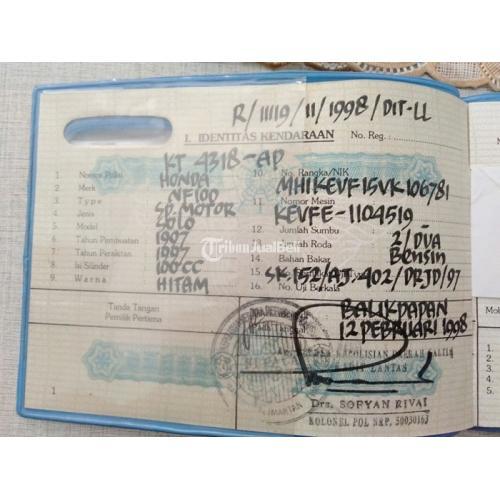 R/1119/11/1998/DIT-LL
I. IDENTITAS KENDARAAN No. Reg. :
1 Nomor Polisi KT 4318-AP
2 Merk HONDA
3 Type NF100
4 Jenis SP. MOTOR
5 Model SOLO
6 Tahun Pembuatan 1997
7 Tahun Perakitan 1997
8 Isi Silinder 100 CC
9 Warna HITAM
10. No. Rangka/NIK MH1KEVF15VK106781
11 Nomor Mesin KEVFE-1104519
12 Jumlah Sumbu
13 Jumlah Roda 2/DUA
14 Bahan Bakar Bensin
15 SK.152/AJ.402/DRJD/97
16 No. Uji Berkala
TribunJualBeli
Tanda Tangan
Pemilik Pertama
BALIKPAPAN
12 PEBRUARI 1998
KEPOLISIAN DAERAH KALTIM
LANTAS
Drs. SOFYAN RIVAI
KOLONEL POL NRP. 50030163
1
Mo
1.
2.
3.
4.
5.